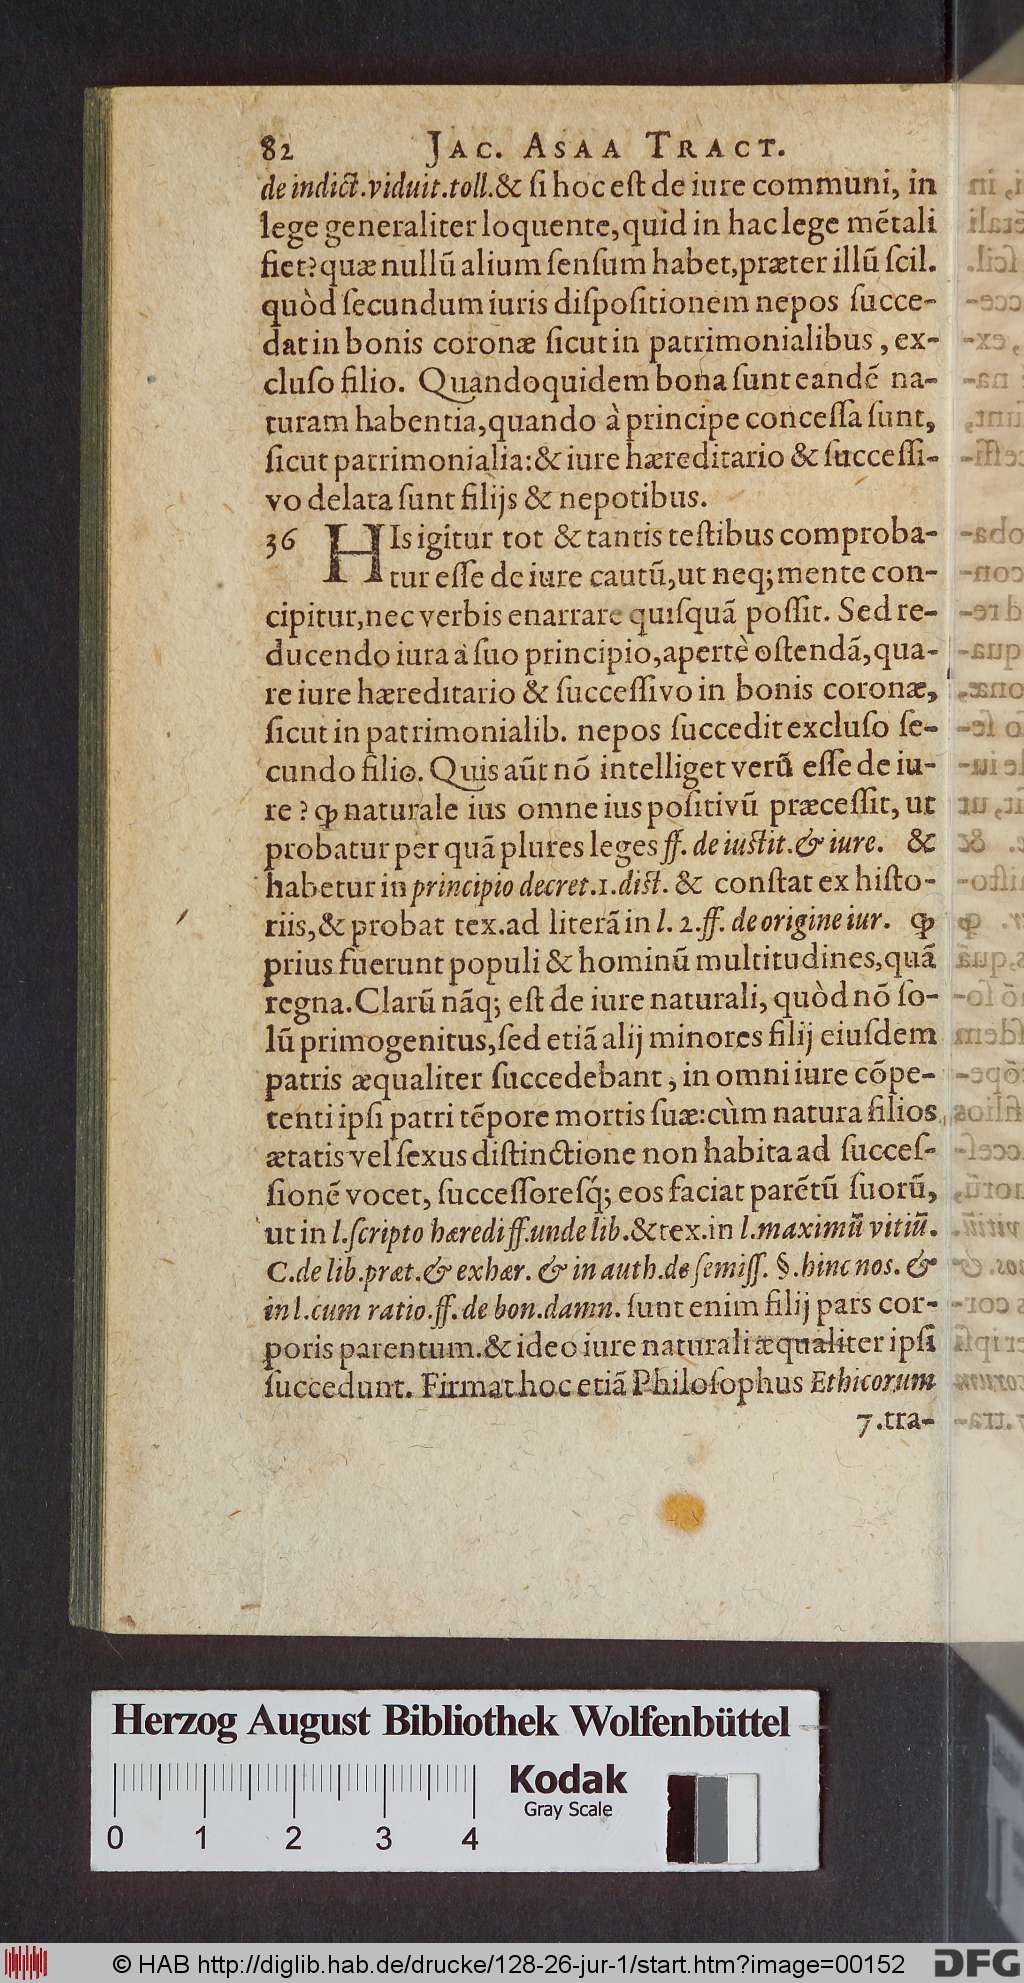 82 JAC. ASAA TRACT.
de indict.viduit.toll.& ſi hoc eſt de iure communi, in
lege generaliter loquente, quid in hac lege mẽtali
fiet? quæ nullũ alium ſenſum habet, præter illũ ſcil.
quòd ſecundum iuris diſpoſitionem nepos ſucce-
dat in bonis coronæ ſicut in patrimonialibus, ex-
cluſo filio. Quandoquidem bona ſunt eandẽ na-
turam habentia, quando à principe conceſſa ſunt,
ſicut patrimonialia: & iure hæreditario & ſucceſſi-
vo delata ſunt filijs & nepotibus.
36 HIs igitur tot & tantis teſtibus comproba-
tur eſſe de iure cautũ, ut neq; mente con-
cipitur, nec verbis enarrare quiſquã poſſit. Sed re-
ducendo iura à ſuo principio, apertè oſtendã, qua-
re iure hæreditario & ſucceſſivo in bonis coronæ,
ſicut in patrimonialib. nepos ſuccedit excluſo ſe-
cundo filio. Quis aũt nõ intelliget verũ eſſe de iu-
re? ꝙ naturale ius omne ius poſitivũ præceſſit, ut
probatur per quã plures leges ff. de iuſtit. & iure. &
habetur in principio decret.1.diſt. & conſtat ex hiſto-
riis, & probat tex. ad literã in l. 2. ff. de origine iur. ꝙ
prius fuerunt populi & hominũ multitudines, quã
regna. Clarũ nãq; eſt de iure naturali, quòd nõ ſo-
lũ primogenitus, ſed etiã alij minores filij eiuſdem
patris æqualiter ſuccedebant, in omni iure cõpe-
tenti ipſi patri tẽpore mortis ſuæ: cùm natura filios
ætatis vel ſexus diſtinctione non habita ad ſucceſ-
ſionẽ vocet, ſucceſſoreſq́; eos faciat parẽtũ ſuorũ,
ut in l. ſcripto hæredi ff. unde lib. & tex. in l. maximũ vitiũ.
C. de lib. præt. & exhær. & in auth. de ſemiſſ. §. hinc nos. &
in l. cum ratio. ff. de bon. damn. ſunt enim filij pars cor-
poris parentum. & ideo iure naturali æqualiter ipſi
ſuccedunt. Firmat hoc etiã Philoſophus Ethicorum
7. tra-
Herzog August Bibliothek Wolfenbüttel
Kodak
Gray Scale
0 1 2 3 4
© HAB http://diglib.hab.de/drucke/128-26-jur-1/start.htm?image=00152
DFG